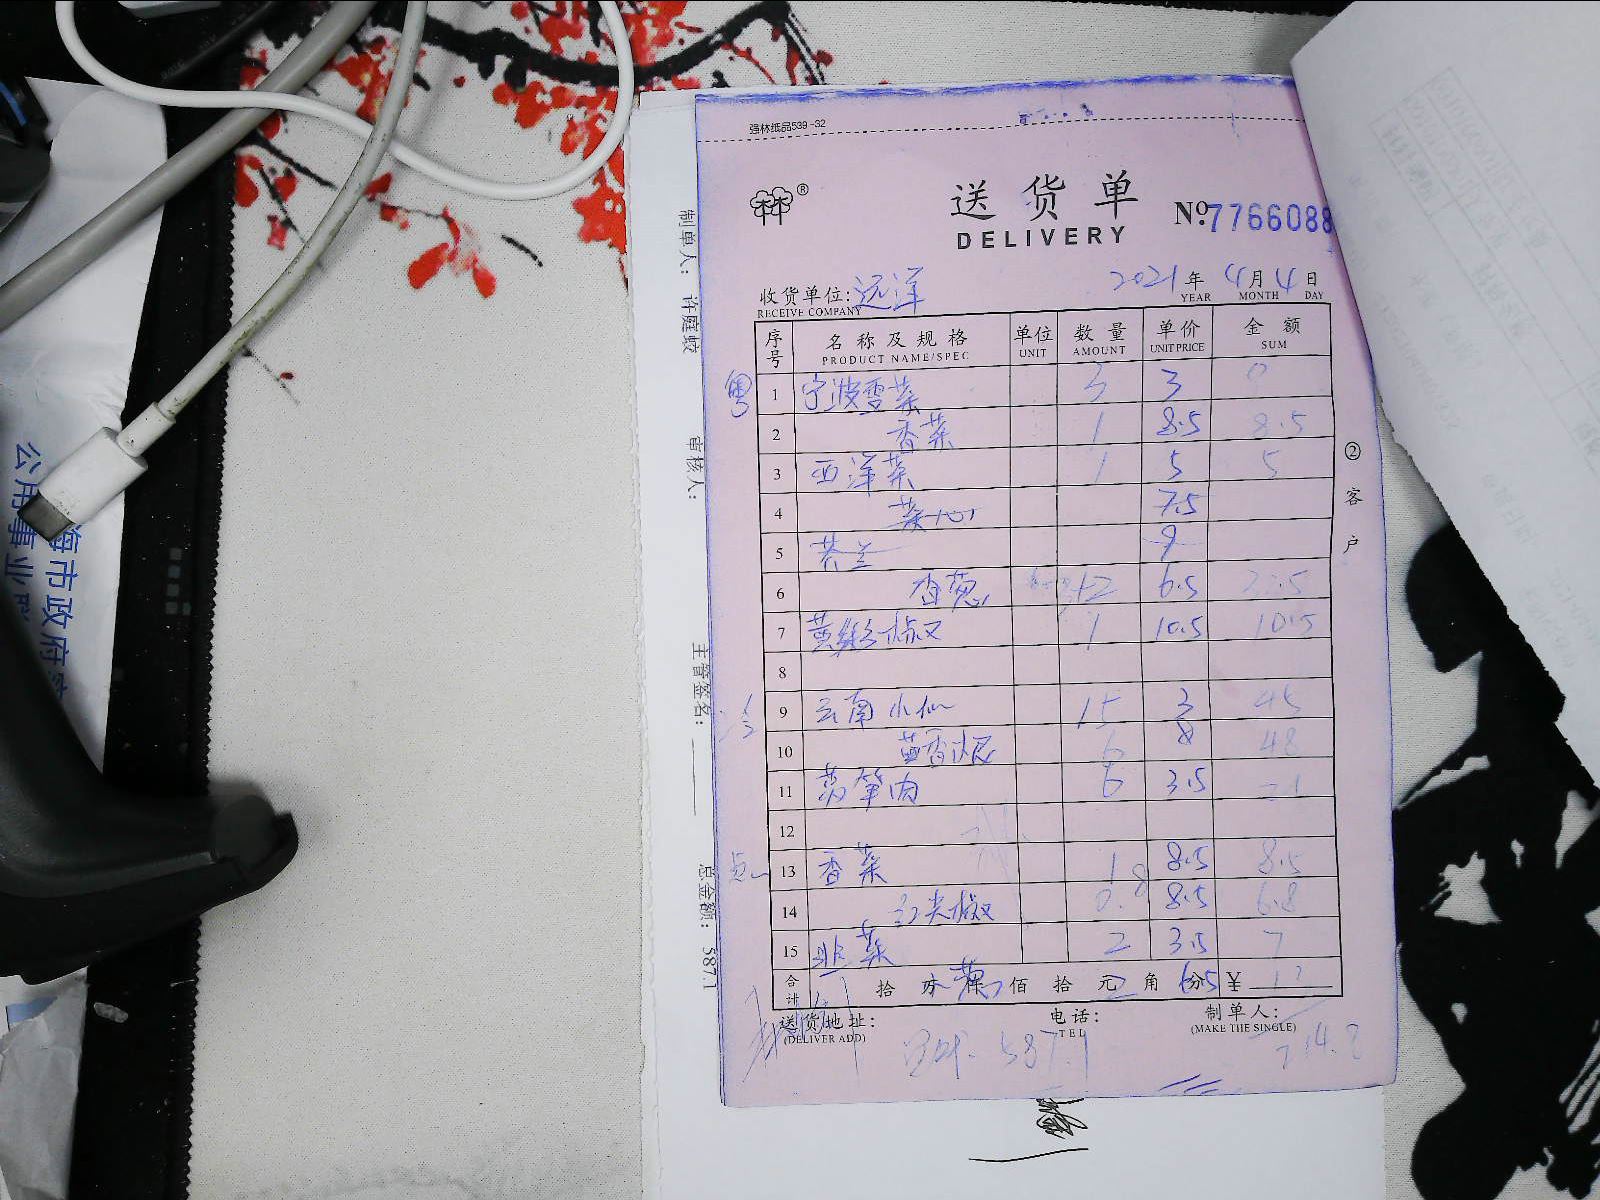 强林纸品539-32
送货单
DELIVERY
№7766088
收货单位: 远洋 2021年4月4日
RECEIVE COMPANY YEAR MONTH DAY
序号 名称及规格 单位 数量 单价 金额
PRODUCT NAME/SPEC UNIT AMOUNT UNIT PRICE SUM
粤 1 宁波雪菜 3 3
2 香菜 1 8.5 8.5
3 西洋菜 1 5 5
4 菜心 7.5
5 芥兰 9
6 香葱 6.5
7 黄彩椒 1 10.5 10.5
8
冷 9 云南小 15 3 45
10 6 8 48
11 笋肉 6 3.5 21
12
点 13 香菜 1 8.5 8.5
14 红尖椒 0.8 8.5 6.8
15 韭菜 2 3.5 7
合计 拾 佰 拾 元 角 分 ¥
送货地址: 电话: 制单人:
(DELIVER ADD) TEL (MAKE THE SINGLE)
587.1
②客户
制单人: 许庭蛟
审核人:
主管签名:
总金额: 587.1
海市政府
公用事业